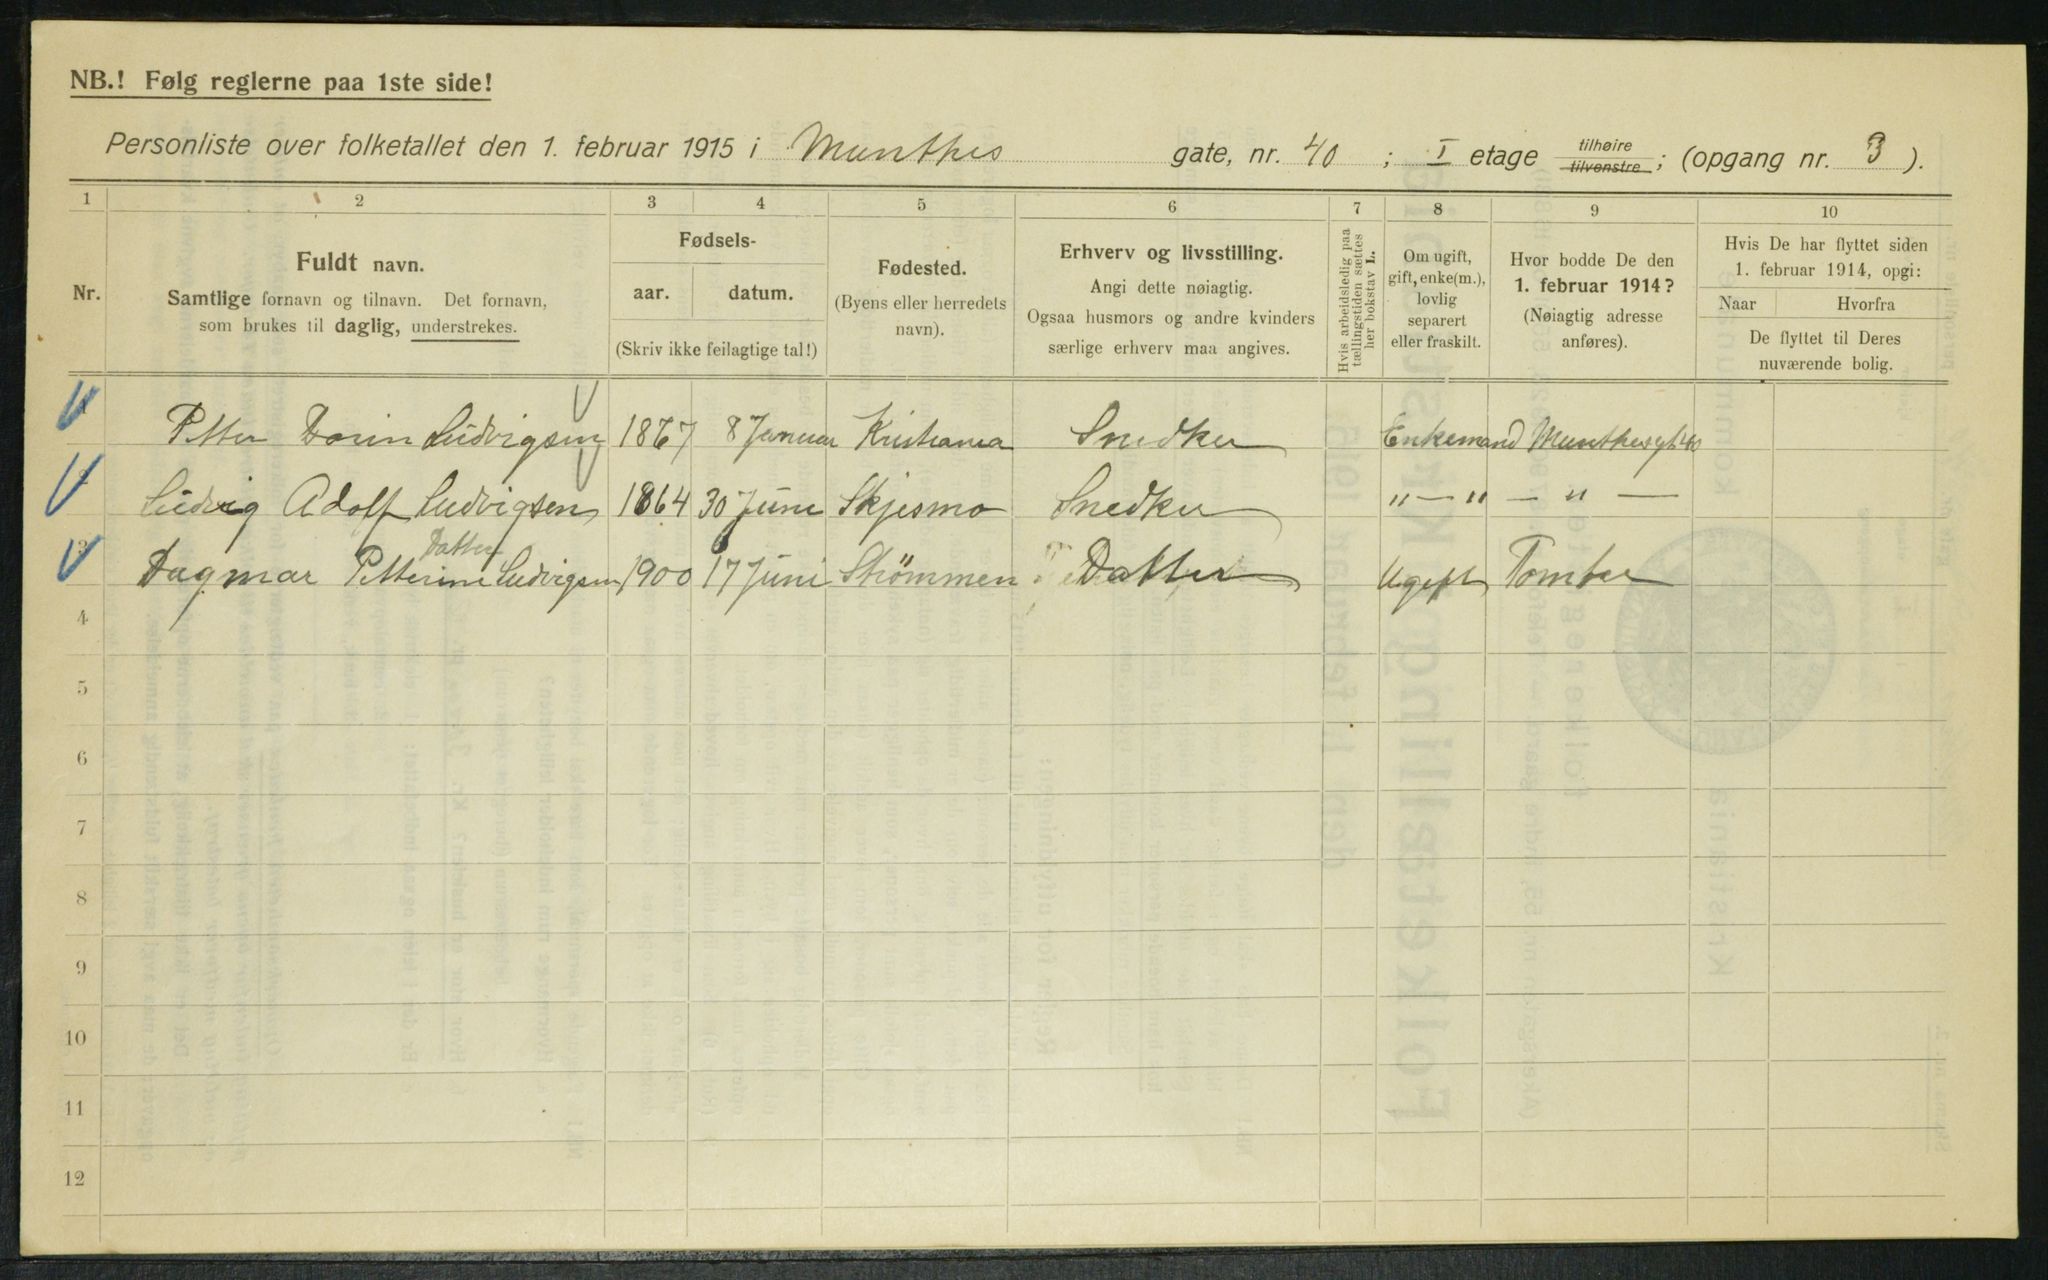 NB.! Følg reglerne paa 1ste side!
Personliste over folketallet den 1. februar 1915 i Munthes gate, nr. 40 ; I etage tilhøire tilvenstre ; (opgang nr. 3 ).
1 2 3 4 5 6 7 8 9 10
Nr.
Fuldt navn.
Samtlige fornavn og tilnavn. Det fornavn,
som brukes til daglig, understrekes.
Fødsels-
aar. datum.
(Skriv ikke feilagtige tal!)
Fødested.
(Byens eller herredets
navn).
Erhverv og livsstilling.
Angi dette nøiagtig.
Ogsaa husmors og andre kvinders
særlige erhverv maa angives.
Hvis arbeidsledig paa
tællingstiden sættes
her bokstav L.
Om ugift,
gift, enke(m.),
lovlig
separert
eller fraskilt.
Hvor bodde De den
1. februar 1914?
(Nøiagtig adresse
anføres).
Hvis De har flyttet siden
1. februar 1914, opgi:
Naar Hvorfra
De flyttet til Deres
nuværende bolig.
1 Petter Dorin Ludvigsen 1867 8 Januar Kristiania Snedker Enkemand Munthesgt 40
2 Ludvig Adolf Ludvigsen 1864 30 Juni Skjesmo Snedker " — " — " —
Datter
3 Dagmar Petterine Ludvigsen 1900 17 Juni Strømmen Datter Ugift Tomter
4
5
6
7
8
9
10
11
12